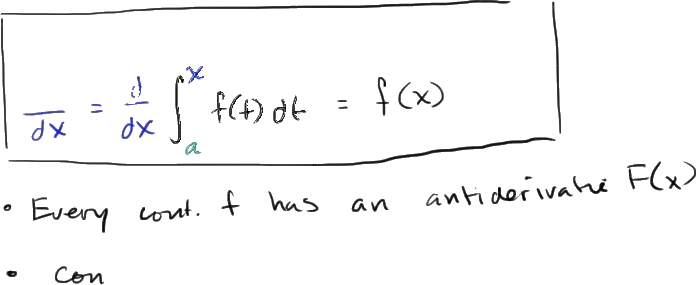 /dx = d/dx ∫_a^x f(t) dt = f(x)
• Every cont. f has an antiderivative F(x)
• Con